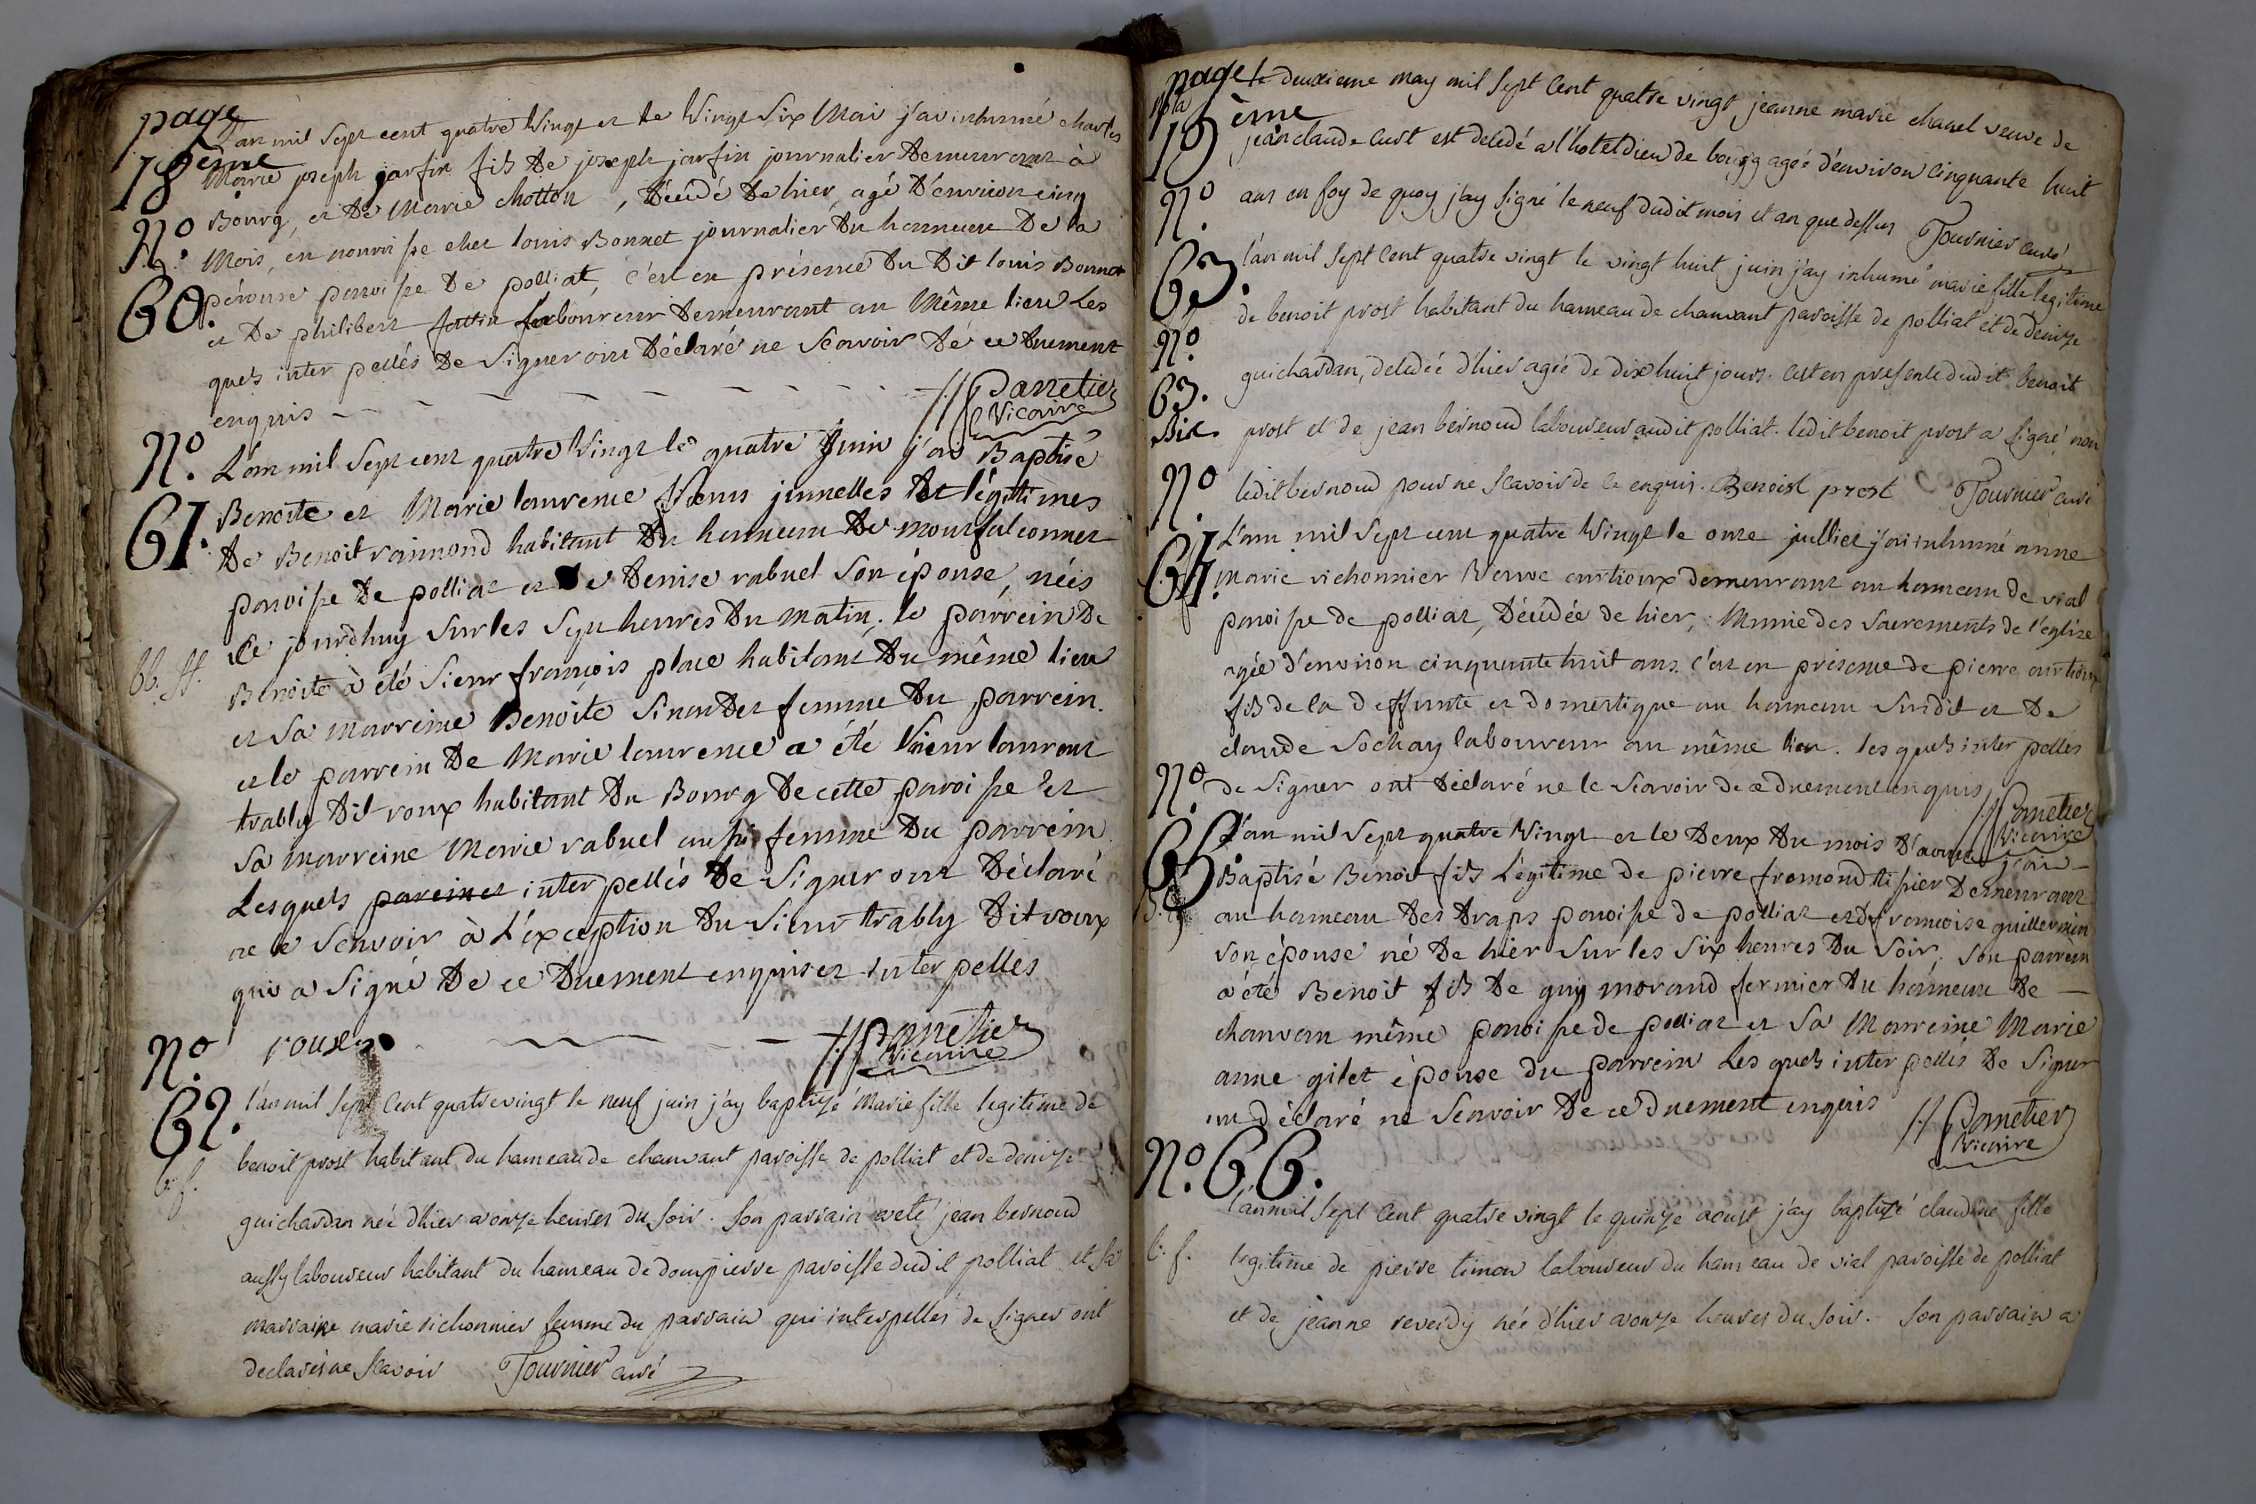 page
18ème
L'an mil sept cent quatre Vingt et le Vingt Six Mai j'ai inhumé charles
Marie joseph jarfin fils De joseph jarfin journalier Demeurant à
Bourg, et De Marie chotton, Décédé De hier, agé D'environ cinq
No.
Mois, en nourrisse chez louis Bonnet journalier Du hameau De la
60.
pérouse paroisse De polliat, c'est en présence Du Dit louis Bonnet
et De philibert laboureur Demeurant au Même lieu Les
quels interpellés De Signer ont Déclaré ne Scavoir De ce Duement
enquis // Panetier
Vicaire
No.
L'an mil Sept cent quatre Vingt le quatre Juin j'ai Baptisé
Benoite et Marie laurence jumelles et légitimes
61.
De Benoit raimond habitant Du hameau De montfalconnet
paroisse De polliat et De Denise rabuel Son épouse, nées
Ce jourdhuy Sur les Sept heures Du matin, le parrein De
bb. ff.
Benoite à été Sieur françois place habitant Du même lieu
et Sa marreine Benoite femme Du parrein.
et le parrein De Marie laurence a été Sieur laurent
trably Dit roux habitant Du Bourg De cette paroisse et
Sa marreine Marie rabuel aussi femme Du parrein
Lesquels pareines interpellés De Signer ont Déclaré
ne le Scavoir à L'éxception Du Sieur trably Dit roux
qui a Signé De ce Duement enquis et interpelles
No. roux // Panetier
Vicaire
62.
l'an mil Sept Cent quatre vingt le neuf juin j'ay baptizé Marie fille legitime de
b. f.
benoit prost habitant du hameau de chauvant paroisse de polliat et de denize
guichardan née d'hier a onze heures du Soir. Son parrain a eté jean bernoud
aussy laboureur habitant du hameau de dompierre paroisse dudit polliat et Sa
marraine marie vichonnier femme du parrain qui interpellés de Signer ont
declaré ne Scavoir Tournier curé
page
19ème
le deuxieme may mil Sept Cent quatre vingt jeanne marie chanel veuve de
jean claude curt est decedé a l'hotel dieu de bourg agée d'environ Cinquante huit
No.
ans en foy de quoy j'ay Signé le neuf dudit mois et an que dessus Tournier curé
63.
l'an mil Sept Cent quatre vingt le vingt huit juin j'ay inhumé marie fille legitime
de benoit prost habitant du hameau de chauvant paroisse de polliat et de denize
No.
guichardan, decedée d'hier agée de dix huit jours. C'est en presence dudit benoit
63.
Bis
prost et de jean bernoud laboureur audit polliat. ledit benoit prost a Signé non
No.
ledit bernoud pour ne Scavoir de ce enquis. Benoist prost Tournier curé
L'an mil Sept cent quatre Vingt le onze juillet j'ai inhumé anne
64.
Marie vichonnier Veuve curtioux demeurant au hameau de vial
paroisse de polliat, Décédée de hier, Munie des Sacrements de l'eglise
agée d'environ cinquante huit ans. C'est en présence de pierre curtioux
fils de la deffunte et domestique au hameau Susdit et De
claude Sochay laboureur au même lieu. lesquels interpellés
No.
de Signer ont Déclaré ne le Scavoir de ce duement enquis // Panetier
Vicaire
65.
L'an mil Sept quatre Vingt et le Deux Du mois D'aoust j'ai
Baptisé Benoit fils Légitime de pierre fromond tissier Demeurant
b. f.
au hameau Des Draps paroisse de polliat et de françoise guillermin
Son épouse né De hier Sur les Six heures Du Soir, Son parrein
a été Benoit fils De guy morand fermier Du hameau De
chanvan même paroisse de polliat et Sa Marreine Marie
anne gilet épouse Du parrein Les quels interpellés De Signer
ont Déclaré ne Scavoir De ce duement enquis // Panetier
Vicaire
No. 66.
l'an mil Sept Cent quatre vingt le quinze aoust j'ay baptizé claudine fille
b. f.
legitime de pierre timon laboureur du hameau de vial paroisse de polliat
et de jeanne reverdy née d'hier a onze heures du Soir. Son parrain a